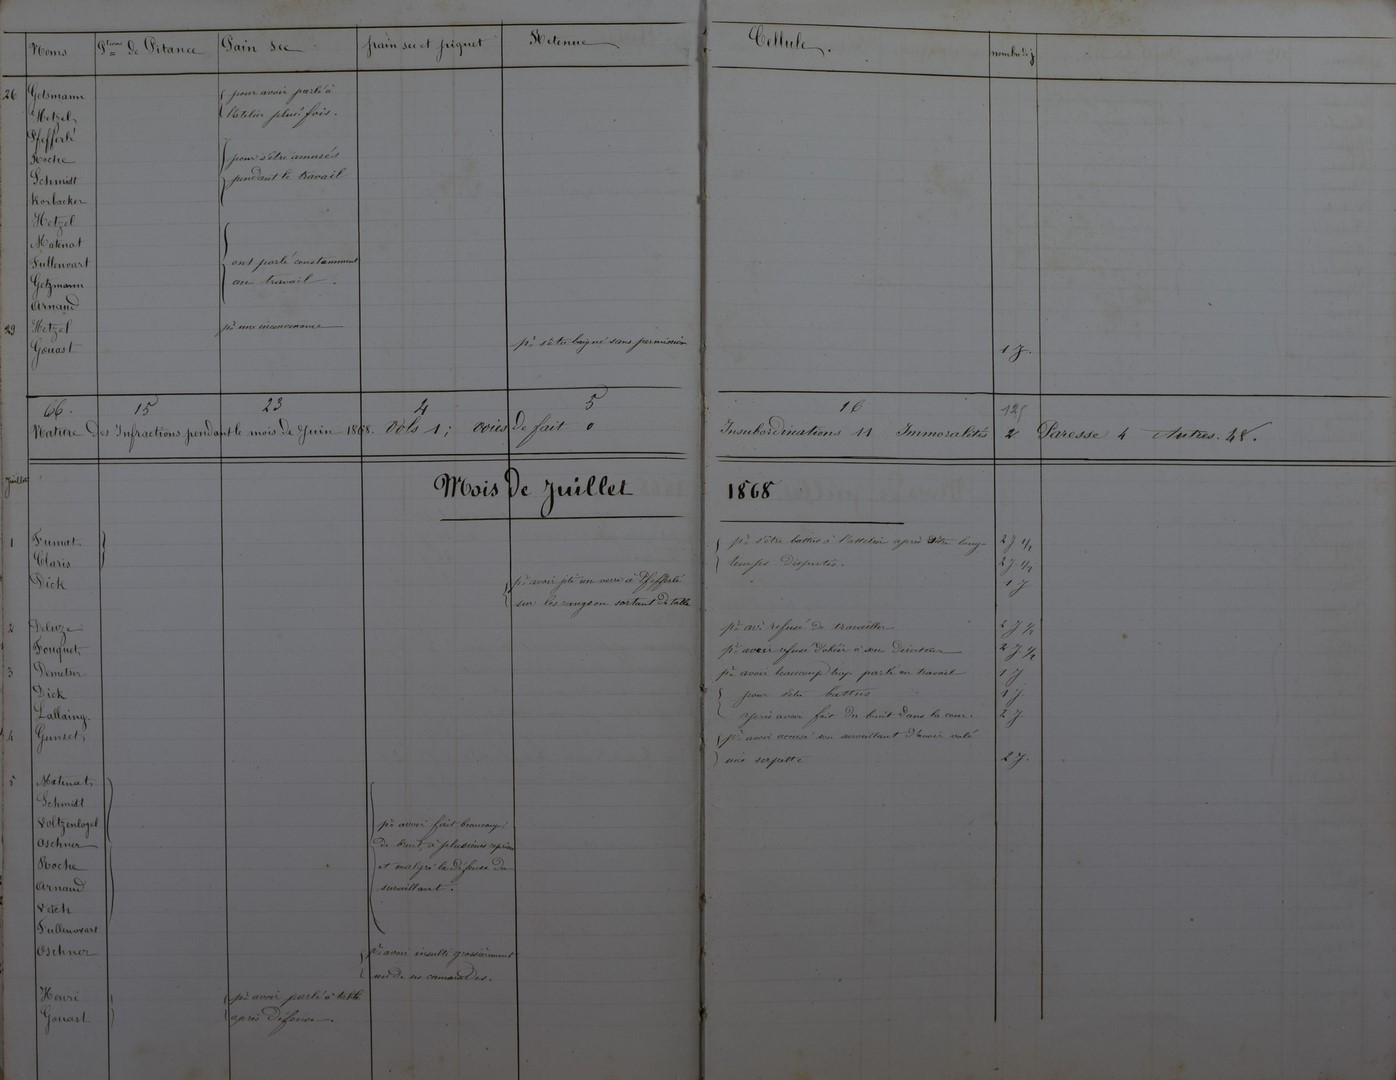 Noms Pton de Pitance Pain sec pain sec et piquet Retenue Cellule. nombre de j
26 Getsmann pour avoir parlé à
Hetzel l'atelier plus. fois.
Pfefferlé
Roche pour s'être amusés
Schmitt pendant le travail
Korbacker
Hetzel
Matenat
Fullenvart ont parlé constamment
Getzmann au travail.
Arnaud
29 Hetzel pr une inconvenance
Gouast pr s'être baigné sans permission 1 J.
66. 15 23 4 5 16
Nature des Infractions pendant le mois de Juin 1868. Vols 1; voies de fait 0 Insubordinations 11 Immoralités 2 Paresse 4 Autres. 48.
Juillet Mois de Juillet 1868
1 Fumat pr s'être battus à l'attelier après s'être long- 2 J 1/2
Claris temps disputés. 2 J 1/2
Dick pr avoir jeté un verre à Pfefferlé 1 J
sur les rangs en sortant de table
2 Deluze pr avr refusé de travailler 2 J 1/2
Fouquet pr avoir refusé d'obéir à son Directeur 2 J 1/2
3 Demetser pr avoir beaucoup trop parlé au travail 1 J
Dick pour s'être battus 1 J.
Lallaing. après avoir fait du bruit dans la cour. 2 J.
4 Gunset, pr avoir accusé son surveillant d'avoir volé
une serpette 2 J.
5 Matenat,
Schmitt
Voltzenlogel pr avoir fait beaucoup
Oschner de bruit, à plusieurs reprises
Roche et malgré la défense du
Arnaud surveillant.
Vetch
Fullenvart
Oschner pr avoir insulté grossièrement
un de ses camarades.
Henri pr avoir parlé à table
Gouast après défense.